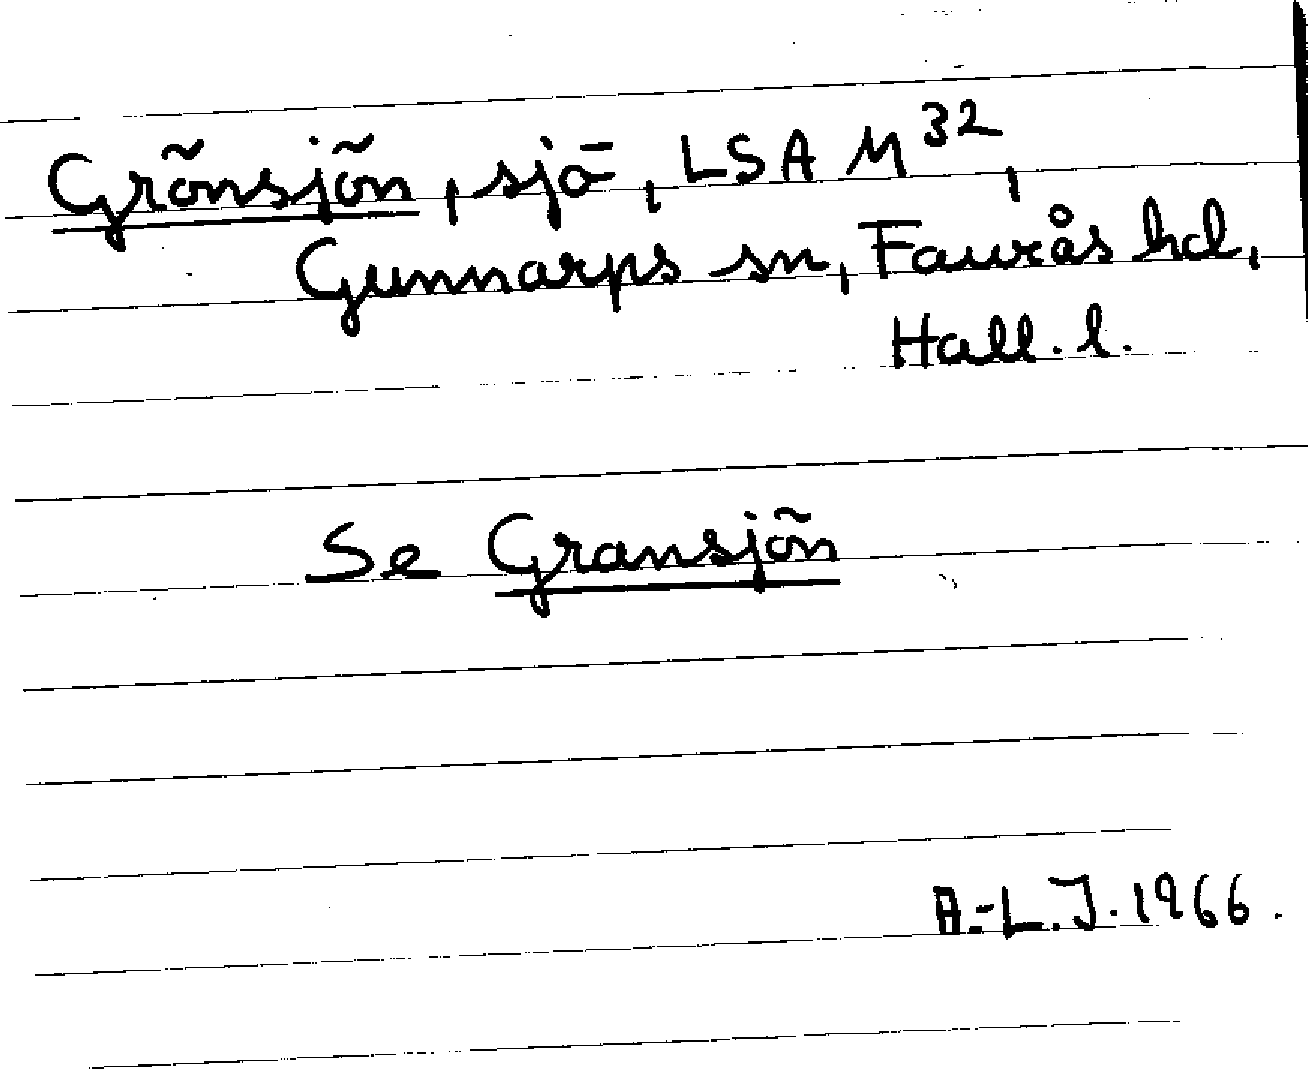 Grönsjön, sjö, LSA M 32,
Gunnarps sn, Faurås hd,
Hall. l.
Se Gransjön
A.-L.J. 1966.